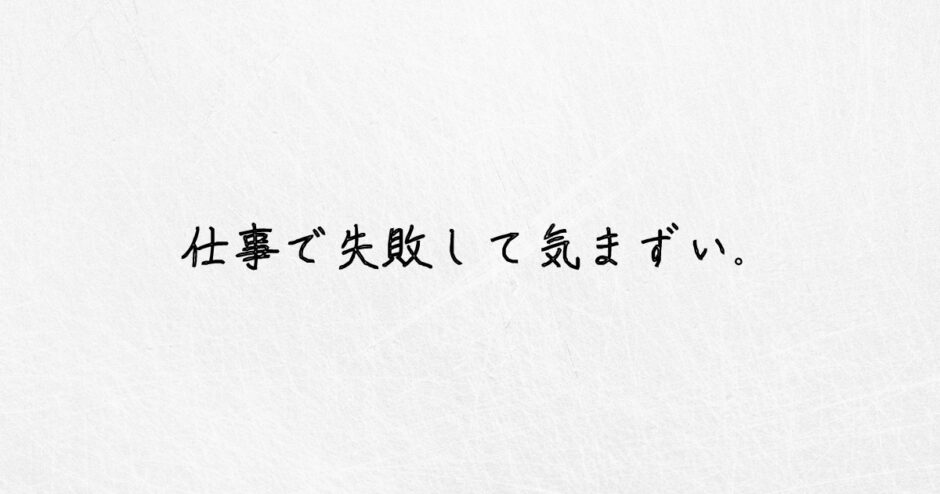 仕事で失敗して気まずい。